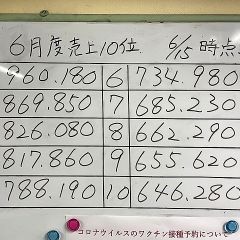 6月度売上10位 6/15時点
960.180 6 734.980
869.850 7 685.230
826.080 8 662.290
817.860 9 655.620
788.190 10 646.280
コロナウイルスのワクチン接種予約につい